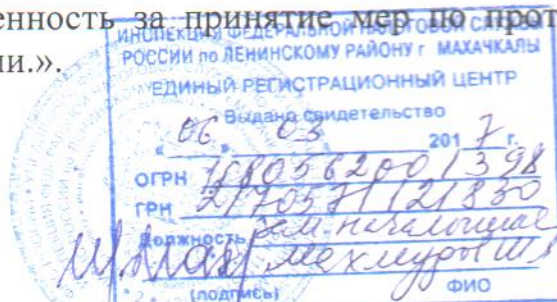 енность за принятие мер по прот
ии.».
ИНСПЕКЦИЯ ФЕДЕРАЛЬНОЙ НАЛОГОВОЙ СЛУЖБЫ
РОССИИ по ЛЕНИНСКОМУ РАЙОНУ г МАХАЧКАЛЫ
ЕДИНЫЙ РЕГИСТРАЦИОННЫЙ ЦЕНТР
Выдано свидетельство
« 06 » 03 2017 г.
ОГРН
ГРН
Должность зам начальника
(подпись) ФИО